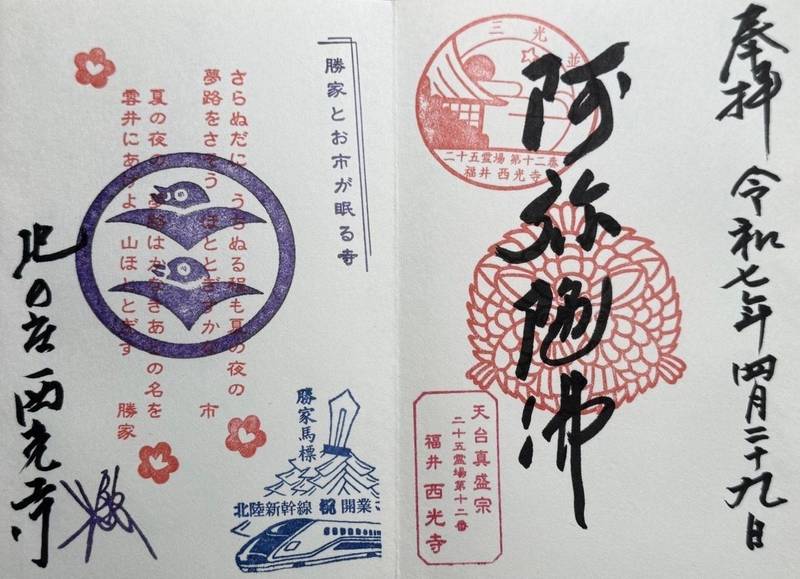 奉拝 令和七年四月二十九日
阿弥陀佛
三光並
二十五霊場 第十二番
福井 西光寺
天台真盛宗
二十五霊場第十二番
福井 西光寺
勝家とお市が眠る寺
さらぬだに うちぬる程も夏の夜の
夢路をさそう ほととぎすかな 市
夏の夜の 夢路はかなきあとの名を
雲井にあげよ 山ほととぎす 勝家
勝家馬標
北陸新幹線 祝 開業
北の庄 西光寺